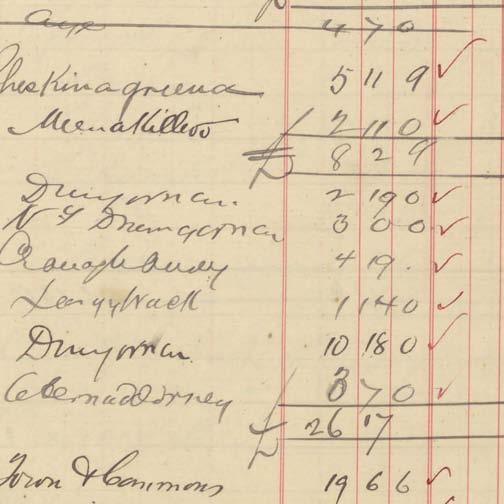 4 7 0
Cheskinagreena 5 11 9
Meenakilleo 2 11 0
£ 8 2 9
Drumgorman 2 19 0
Drumgorman 3 0 0
4 19
1 14 0
Drumgorman 10 18 0
3 7 0
£ 26 17
Town & Commons 19 6 6